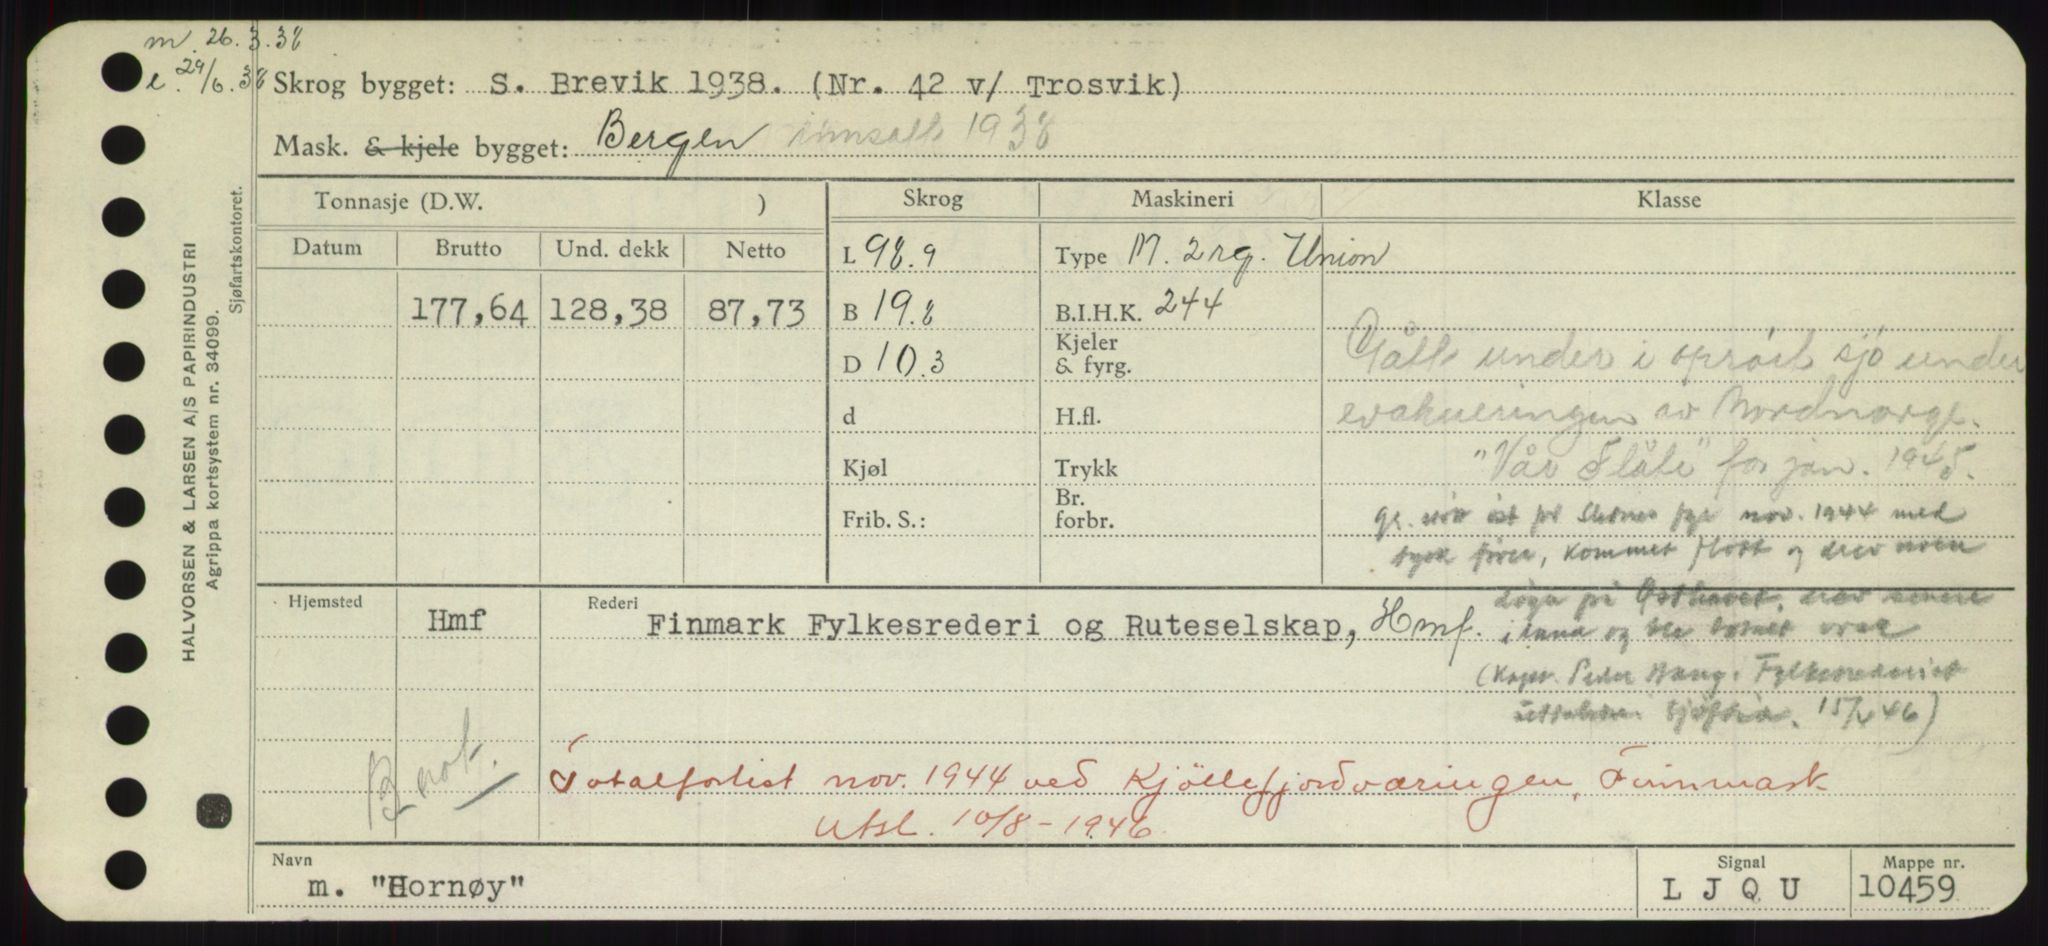 m. 26.3.38
e. 29/6.38
Skrog bygget: S. Brevik 1938. (Nr. 42 v/ Trosvik)
Mask. & kjele bygget: Bergen innsatt 1938
Tonnasje (D.W. ) Skrog Maskineri Klasse
Datum Brutto Und. dekk Netto
L 98.9 Type M. 2 rg. Union
177,64 128,38 87,73
B 19.8 B.I.H.K. 244
D 10.3 Kjeler & fyrg.
d H.fl.
Kjøl Trykk
Frib. S.: Br. forbr.
Gått under i oprört sjö under
evakueringen av Nordnorge.
"Vår Flåte" for jan. 1945.
nov. 1944 med
tysk fører, kommet flott og drev
på Østhavet, drev senere
i land og ble vrak
(Kapt. Peder Fylkesrederiet
46)
Hjemsted Hmf Rederi Finmark Fylkesrederi og Ruteselskap, Hmf.
B not.
Totalforlist nov. 1944 ved Kjöllefjordværingen, Finnmark
Utsl. 10/8-1946
Navn m. "Hornøy"
Signal L J Q U
Mappe nr. 10459
HALVORSEN & LARSEN A/S PAPIRINDUSTRI
Agrippa kortsystem nr. 34099.
Sjøfartskontoret.